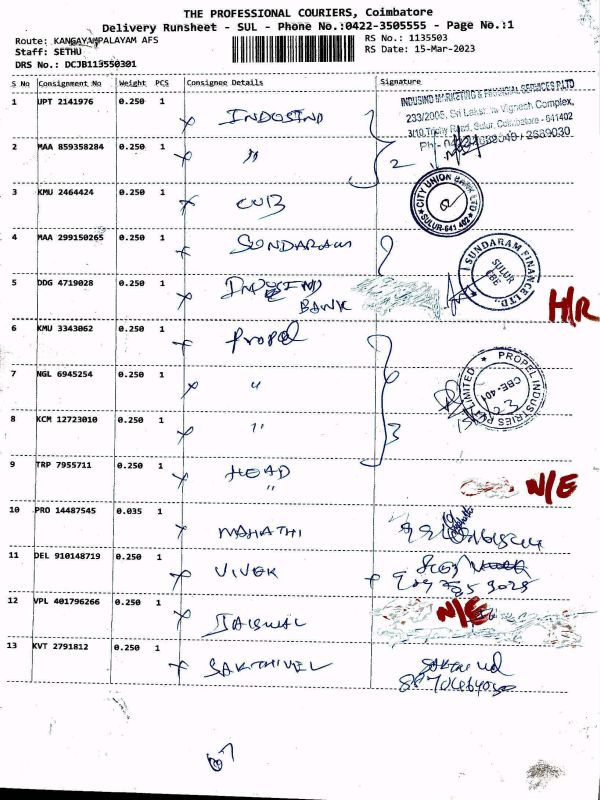 THE PROFESSIONAL COURIERS, Coimbatore
Delivery Runsheet - SUL - Phone No.:0422-3505555 - Page No.:1
Route: KANGAYAMPALAYAM AFS RS No.: 1135503
Staff: SETHU RS Date: 15-Mar-2023
DRS No.: DCJB113550301
S No Consignment No Weight PCS Consignee Details Signature
1 UPT 2141976 0.250 1 INDUSIND
INDUSIND MARKETING & FINANCIAL SERVICES P.LTD
233/2005, Sri Lakshmi Vignesh Complex,
3/10, Trichy Road, Sulur, Coimbatore - 641402
2 MAA 859358284 0.250 1 " 2
3 KMU 2464424 0.250 1 CUB
CITY UNION BANK LTD
SULUR-641 402
4 MAA 299150265 0.250 1 SUNDARAM
SUNDARAM FINANCE LTD.
SULUR
CBE
5 DDG 4719028 0.250 1 INDUSIND
BANK
H/R
6 KMU 3343062 0.250 1 Propel
7 NGL 6945254 0.250 1 "
PROPEL INDUSTRIES PVT LIMITED
CBE-401
8 KCM 12723010 0.250 1 " 3
9 TRP 7955711 0.250 1 HEAD
"
N/E
10 PRO 14487545 0.035 1 MAHATHI
11 DEL 910148719 0.250 1 VIVEK
12 VPL 401796266 0.250 1 JAISWAL
N/E
13 KVT 2791812 0.250 1 SAKTHIVEL